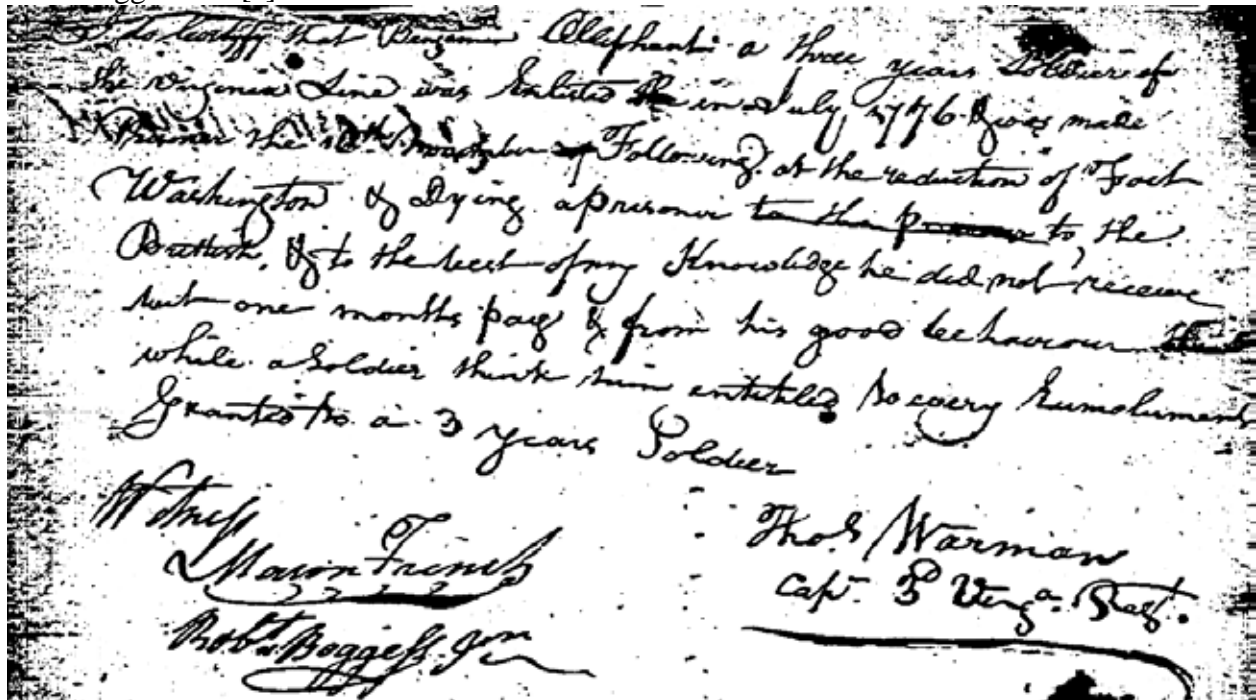 I do Certify that Benjamin Oliephant a three years Soldier of
the Virginia Line was Enlisted in July 1776 & was made
Prisoner the 16th November Following at the reduction of Fort
Washington & Dying a prisoner to the prisoner to the
Brittish, & to the best of my Knowledge he did not receive
but one months pay & from his good beehaviour
while a Soldier think him entitled to every Eumolument
Granted to a 3 years Soldier
Witness
Mason French
Robt. Boggess Jun
Thos. Warman
Capt. 3d Virga. Regt.